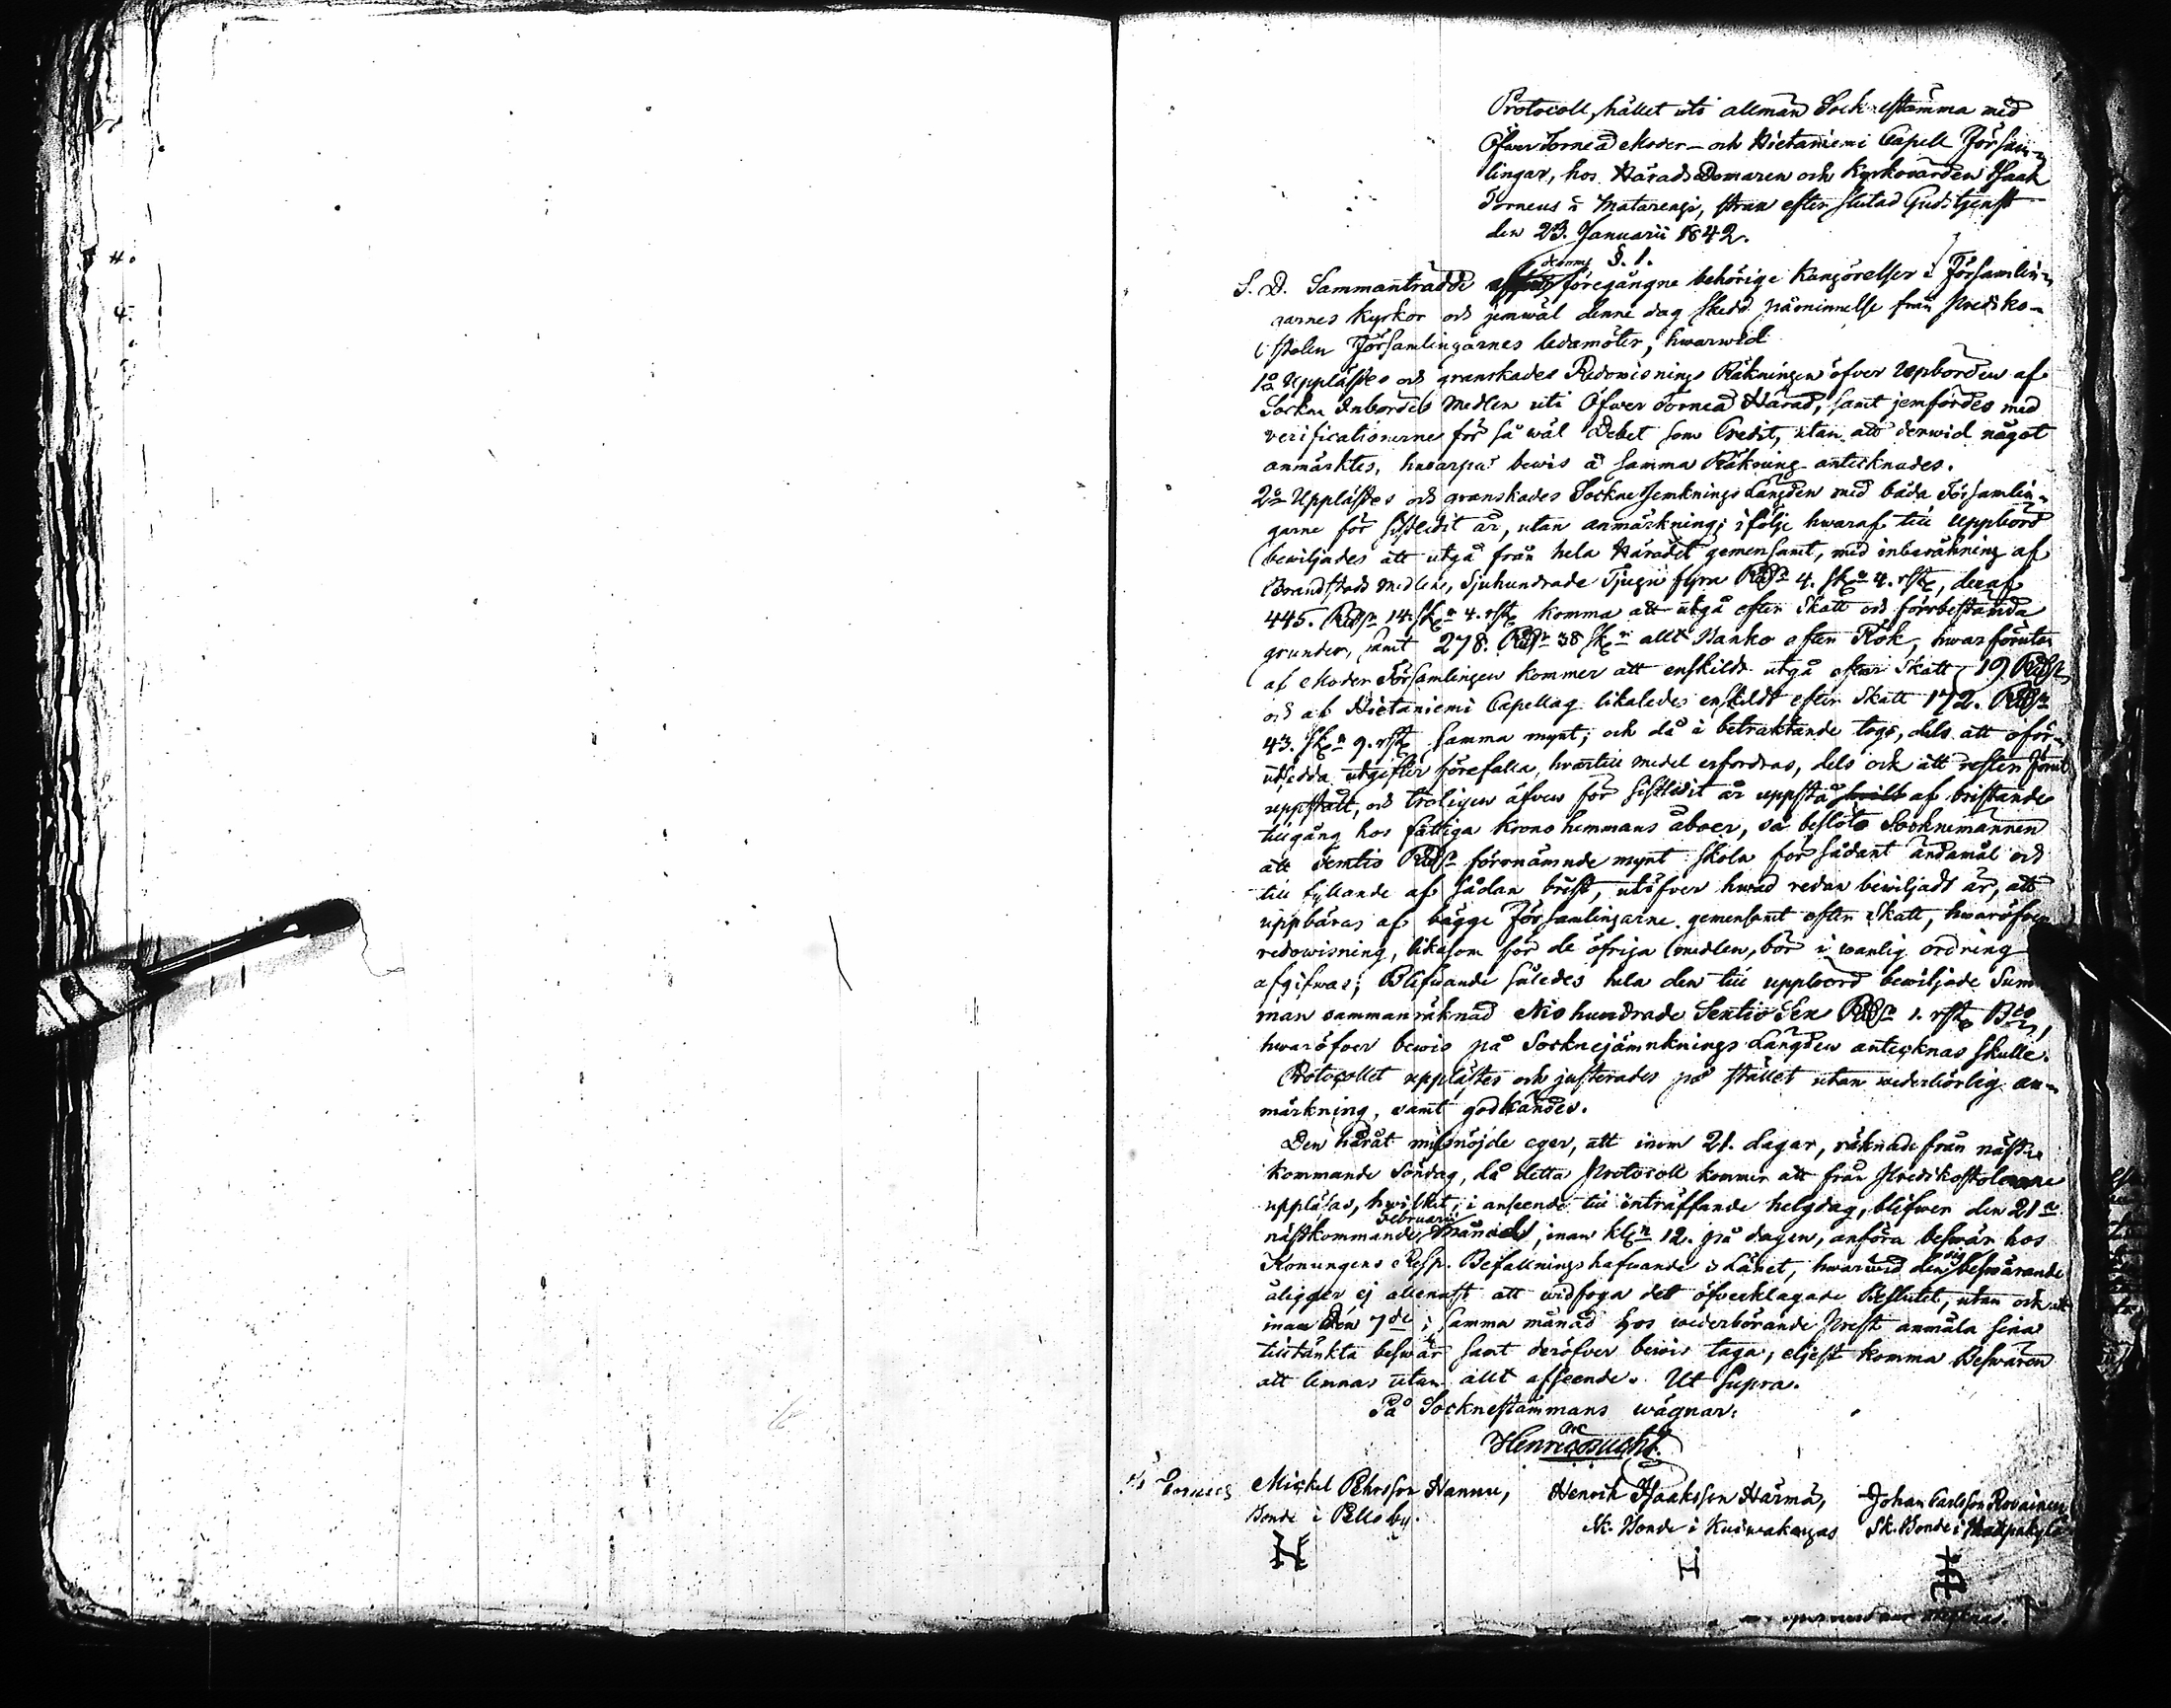 Protocoll, hållet uti allmän Socknestämma med
Öfwer Torneå Moder- och Hietaniemi Capell Försam-
lingar, hos HäradsDomaren och Kyrkovärden Isaak
Torneus i Matarengi, straxt efter slutad Gudstjenst
den 23. Januarii 1842.
§. 1.
S. D. Sammanträdde föregångne behörige kungörelser i Församlin-
garnes kyrkor och jemwäl denne dag skedd påminnelse från Prediko-
stolen Församlingarnes ledamöter, hwarwid
1o Upplästes och granskades Redowisnings Räkningen öfver Upbörden af
Sockne Inbördes Medlen uti Öfwer Torneå Härad, samt jemfördes med
verificationerne för så wäl Debet som Credit, utan att derwid något
anmärktes, hwarpå bewis å samma Räkning antecknades.
2o Upplästes och granskades Sockne Jemknings Längden med båda Församlin-
garne för sistledit år, utan anmärkning; i följe hwaraf till uppbörd
bewiljades att utgå från hela Häradet gemensamt, med inberäkning af
Brandstods Medlen, Sjuhundrade Tjugu fyra RDr 4. sk 4. rst, deraf
445. RDr 14. sk 4. rst komma att utgå efter Skatt och förrbestämda
grunder, samt 278. RDr 38 sk allt Banko efter Rök, hwarförutan
af Moder Församlingen kommer att enskildt utgå efter Skatt 19 RDr
och af Hietaniemi Capellag likaledes enskildt efter Skatt 172. RDr
43. sk 9. rst samma mynt; och då i betraktande togs, dels att oför-
utsedda utgifter förefalla, hwartill medel erfordras, dels ock att rester förut
uppstått, och troligen äfven för sistledit år uppstå af bristande
tillgång hos fattiga Krono hemmans åboer, så beslöto Socknemännen
att Femtio RDr förenämnde mynt skola for sådant ändamål och
till fyllande af sådan brist, utöfver hwad redan bewiljadt är, att
uppbäras af bägge Församlingarne gemensamt efter Skatt, hwaröfver
redowisning, likasom för de öfriga medlen, bör i wanlig ordning
afgifwas; Blifwande således hela den till uppbörd bewiljade Sum-
man sammanräknad Niohundrade Sextio Sex RDr 1. rst Bco,
hwaröfver bewis på Socknejämnknings Längden antecknas skulle.
Protocollet upplästes och justerades på stället utan wederbörlig an-
märkning, samt godkändes.
Den häråt missnöjde eger, att inom 21. dagar, räknade från näst
kommande Söndag, då detta Protocoll kommer att från Predikostolarne
uppläsas, hwilket, i anseende till inträffande helgdag, blifwer den 21
nästkommande Februarii månad, innan kl 12. på dagen, anföra beswär hos
Konungens Resp. Befallningshafwande i Länet, hwarwid den sig beswärande
åligger ej allenast att widfoga det öfverklagade Beslutet, utan ock att
innan den 7de i samma månad hos wederbörande Prest anmäla sina
tilltänkta beswär samt deröfver bewis taga, eljest komma Beswären
att lemnas utan allt afseende. Ut Supra.
På Socknestämmans wägnar:
Torneus Mickel Pehrsson Hannu, Henrik Isaksson Härmä, Johan Carlsson Rovainen
Bonde i Pello by. Sk. Bonde i Kuiwakangas Sk. Bonde i